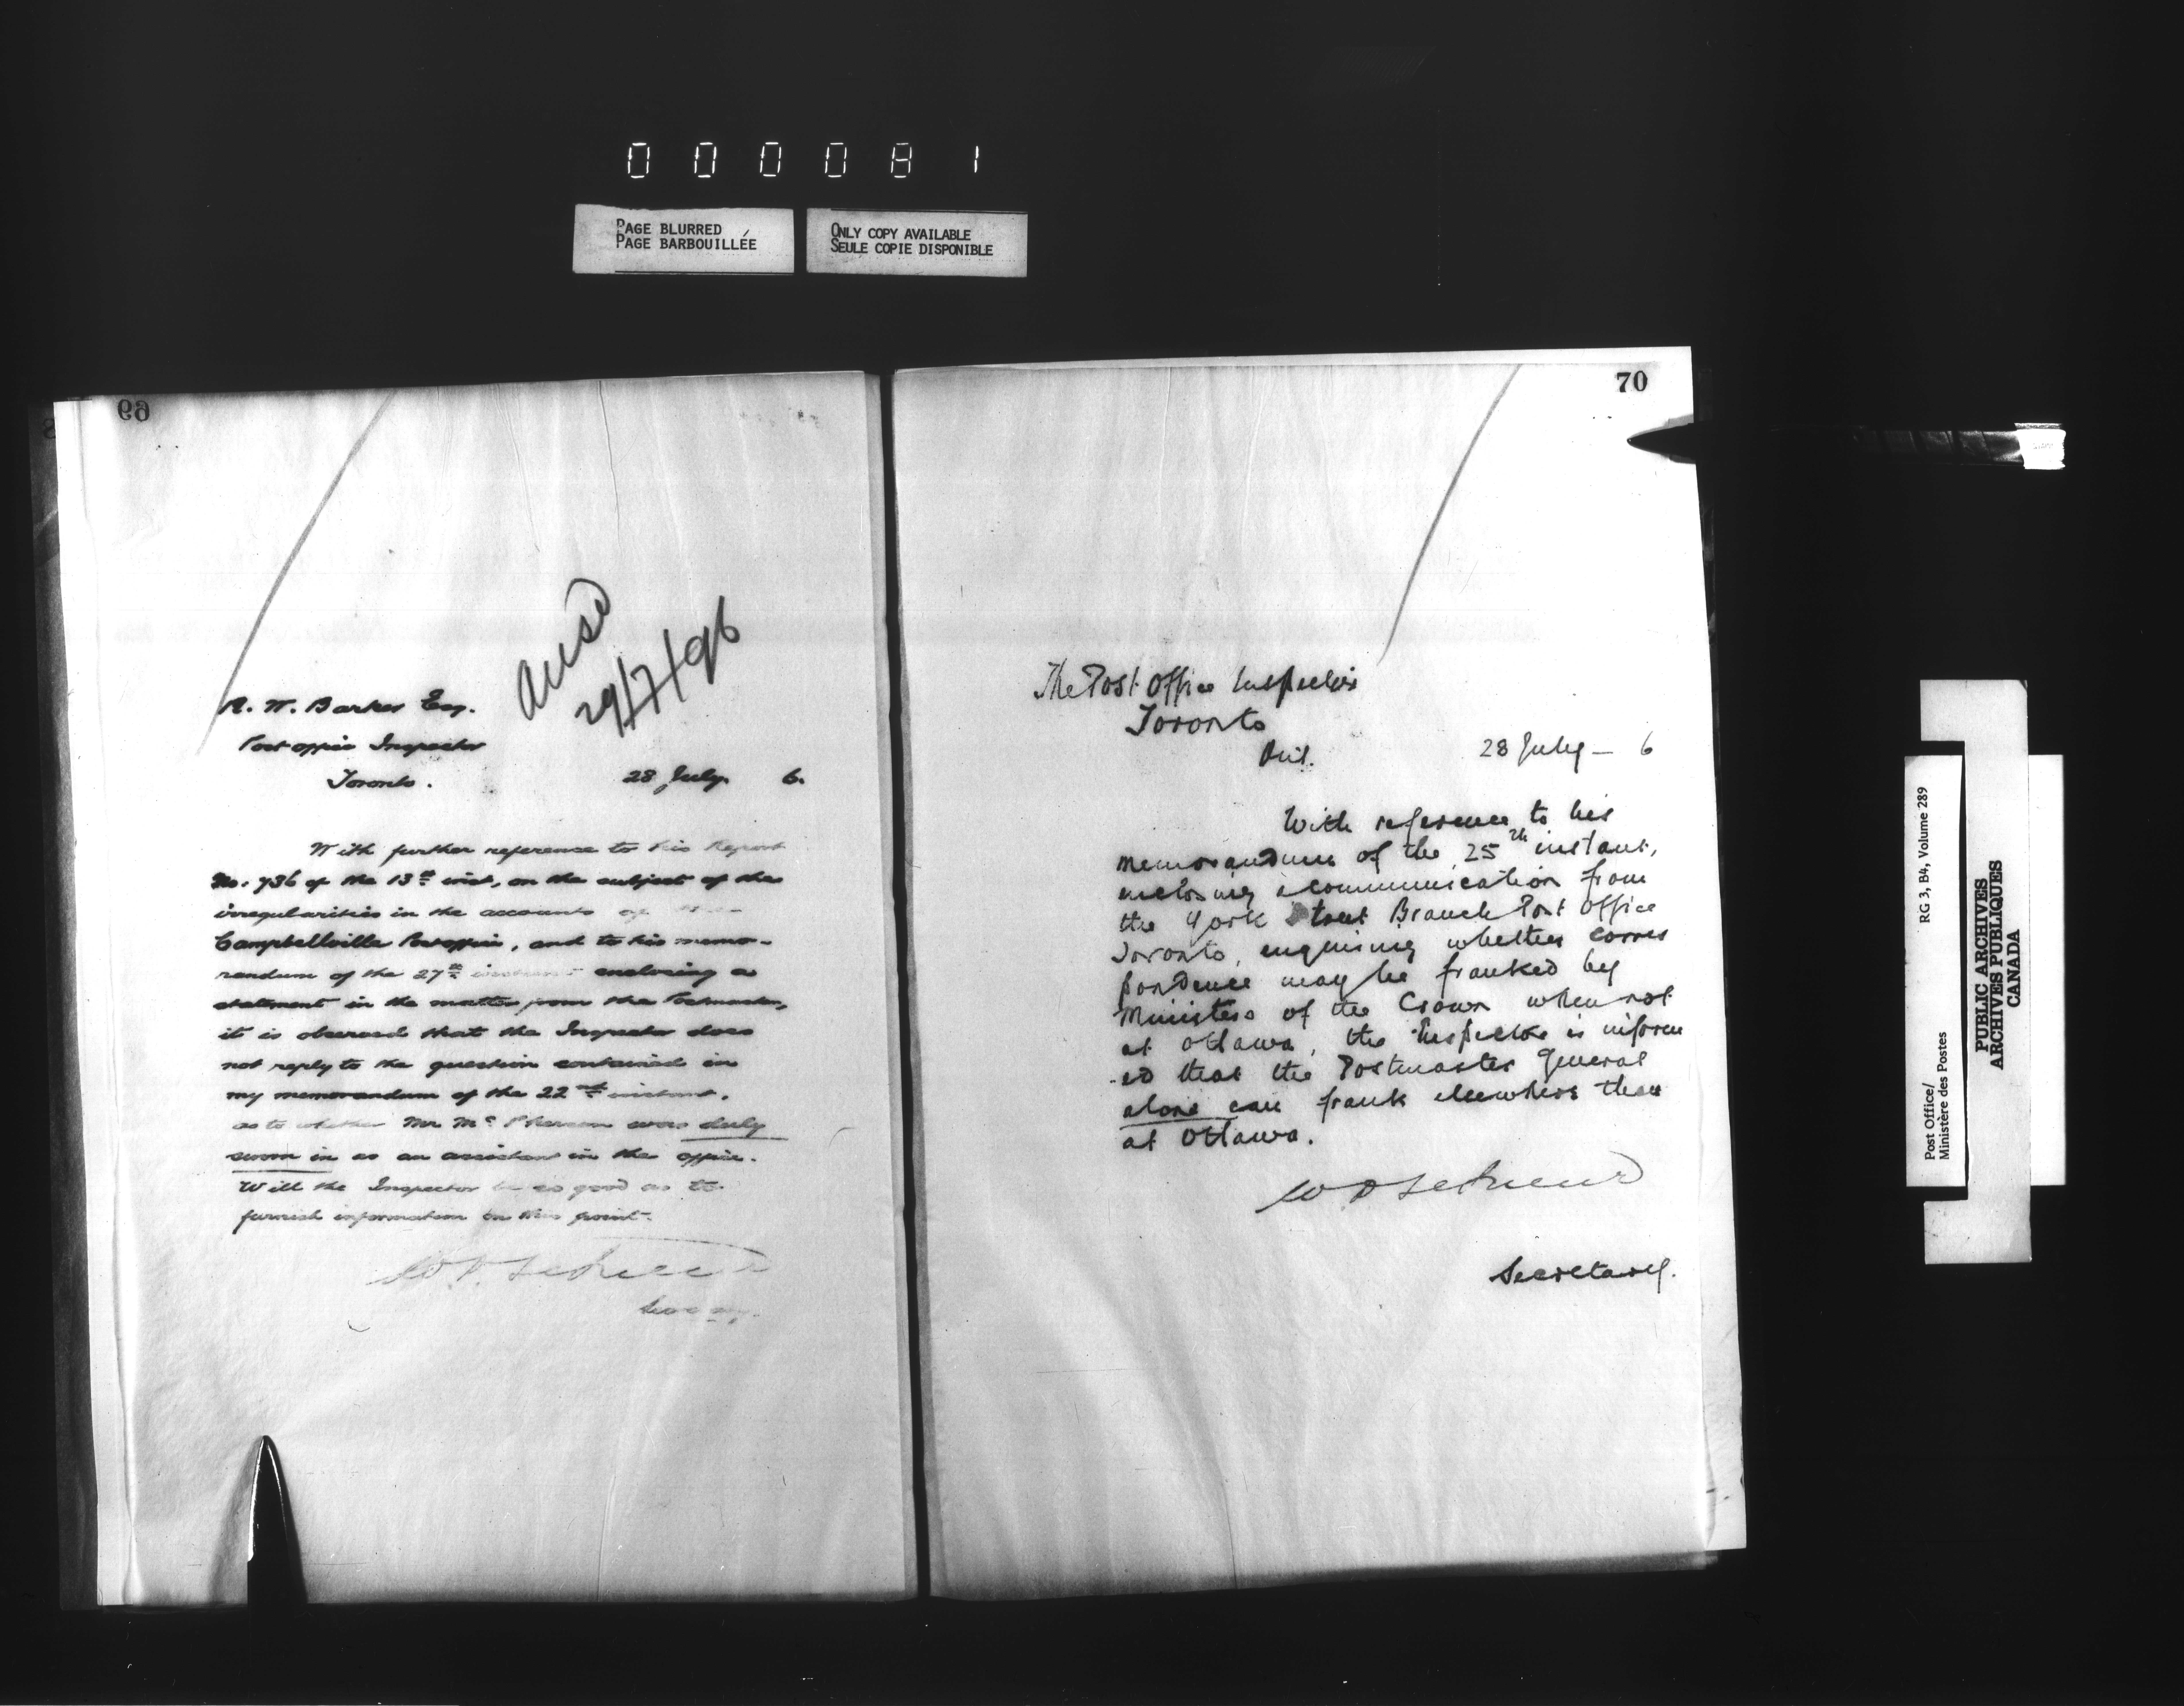 000081
PAGE BLURRED
PAGE BARBOUILLÉE
ONLY COPY AVAILABLE
SEULE COPIE DISPONIBLE
69
Ansd
29/7/96
R. W. Barker Esq.
Post office Inspector
Toronto.
28 July. 6.
With further reference to his Report
No. 736 of the 13th inst, on the subject of the
irregularities in the accounts of the
Campbellville Post office, and to his memo-
randum of the 27th instant enclosing a
statement in the matter from the Postmaster,
it is observed that the Inspector does
not reply to the question contained in
my memorandum of the 22nd instant.
as to whether Mr McPherson was duly
sworn in as an assistant in the office.
Will the Inspector be so good as to
furnish information on this point.
Secretary.
70
The Post Office Inspector
Toronto
Ont.
28 July — 6
With reference to his
memorandum of the 25th instant,
enclosing a communication from
the York Street Branch Post Office
Toronto, enquiring whether corres
pondence may be franked by
Ministers of the Crown when not
at Ottawa, the Inspector is inform
-ed that the Postmaster General
alone can frank elsewhere than
at Ottawa.
Secretary.
Post Office/
Ministère des Postes
RG 3, B4, Volume 289
PUBLIC ARCHIVES
ARCHIVES PUBLIQUES
CANADA